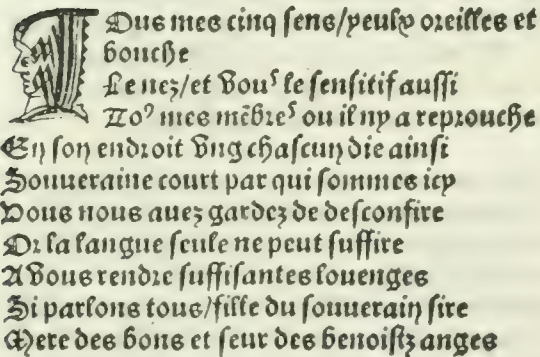 TOus mes cinq sens/yeulx oreilles et
bouche
Le nez/et vouˢ le sensitif aussi
Toꝰ mes mēbreˢ ou il ny a reprouche
En son endroit vng chascun die ainsi
Souueraine court par qui sommes icy
Vous nous auez gardez de desconfire
Or la langue seule ne peut suffire
A vous rendre suffisantes louenges
Si parlons tous/fille du souuerain sire
Mere des bons et seur des benoistz anges